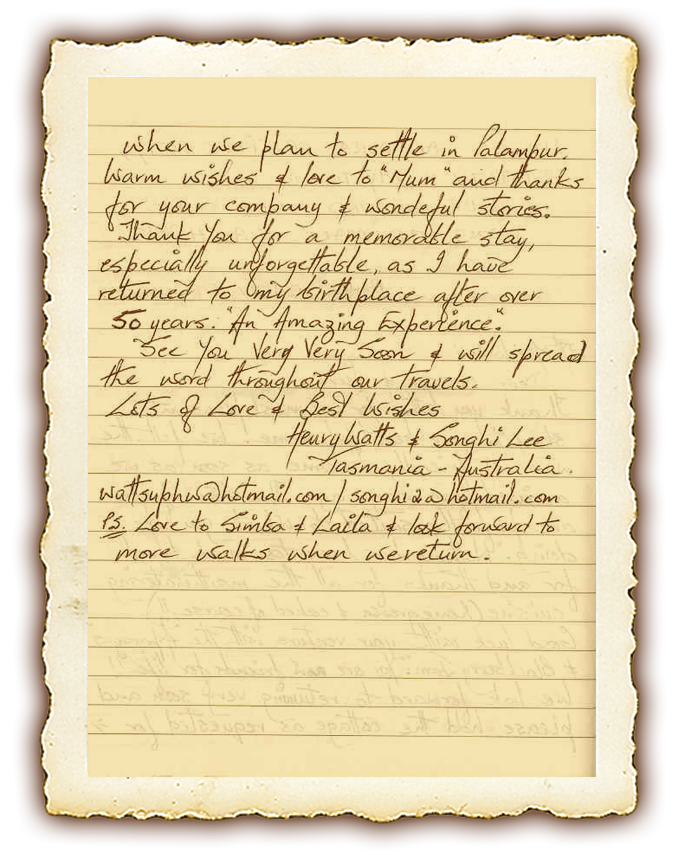 when we plan to settle in Palampur.
Warm wishes & love to "Mum" and thanks
for your company & wondeful stories.
Thank You for a memorable stay,
especially unforgettable, as I have
returned to my birthplace after over
50 years. "An Amazing Experience."
See You Very Very Soon & will spread
the word throughout our travels.
Lots of Love & Best Wishes
Henry Watts & Songhi Lee
Tasmania - Australia.
wattsuphw@hotmail.com / songhi2@hotmail.com
P.S. Love to Simba & Laila & look forward to
more walks when we return.